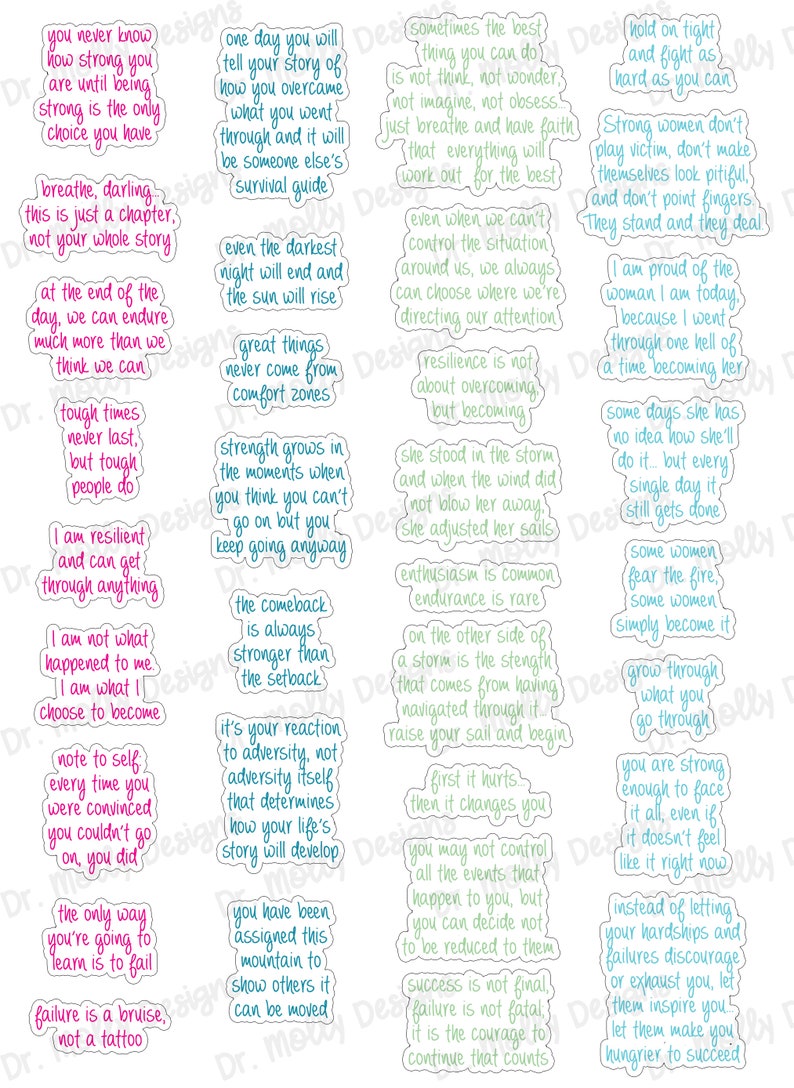 you never know
how strong you
are until being
strong is the only
choice you have
breathe, darling...
this is just a chapter,
not your whole story
at the end of the
day, we can endure
much more than we
think we can
tough times
never last,
but tough
people do
I am resilient
and can get
through anything
I am not what
happened to me.
I am what I
choose to become
note to self:
every time you
were convinced
you couldn't go
on, you did
the only way
you're going to
learn is to fail
failure is a bruise,
not a tattoo
one day you will
tell your story of
how you overcame
what you went
through and it will
be someone else's
survival guide
even the darkest
night will end and
the sun will rise
great things
never come from
comfort zones
strength grows in
the moments when
you think you can't
go on but you
keep going anyway
the comeback
is always
stronger than
the setback
it's your reaction
to adversity, not
adversity itself
that determines
how your life's
story will develop
you have been
assigned this
mountain to
show others it
can be moved
sometimes the best
thing you can do
is not think, not wonder,
not imagine, not obsess...
just breathe and have faith
that everything will
work out for the best
even when we can't
control the situation
around us, we always
can choose where we're
directing our attention
resilience is not
about overcoming,
but becoming
she stood in the storm
and when the wind did
not blow her away,
she adjusted her sails
enthusiasm is common
endurance is rare
on the other side of
a storm is the stength
that comes from having
navigated through it...
raise your sail and begin
first it hurts...
then it changes you
you may not control
all the events that
happen to you, but
you can decide not
to be reduced to them
success is not final,
failure is not fatal;
it is the courage to
continue that counts
hold on tight
and fight as
hard as you can
Strong women don't
play victim, don't make
themselves look pitiful,
and don't point fingers.
They stand and they deal.
I am proud of the
woman I am today,
because I went
through one hell of
a time becoming her
some days she has
no idea how she'll
do it... but every
single day it
still gets done
some women
fear the fire,
some women
simply become it
grow through
what you
go through
you are strong
enough to face
it all, even if
it doesn't feel
like it right now
instead of letting
your hardships and
failures discourage
or exhaust you, let
them inspire you...
let them make you
hungrier to succeed
Dr. Molly Designs